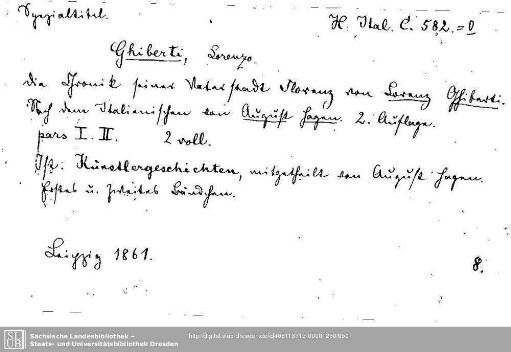 Spezialtitel.
H. Ital. C. 582.=0
Ghiberti, Lorenzo.
die Chronik seiner Vaterstadt Florenz von Lorenz Ghiberti.
Nach dem Italienischen von August Hagen. 2. Auflage.
pars I. II. 2 voll.
Ist: Künstlergeschichten, mitgetheilt von August Hagen.
Erstes u. zweites Bändchen.
Leipzig 1861.
8.
SLUB
Sächsische Landesbibliothek –
Staats- und Universitätsbibliothek Dresden